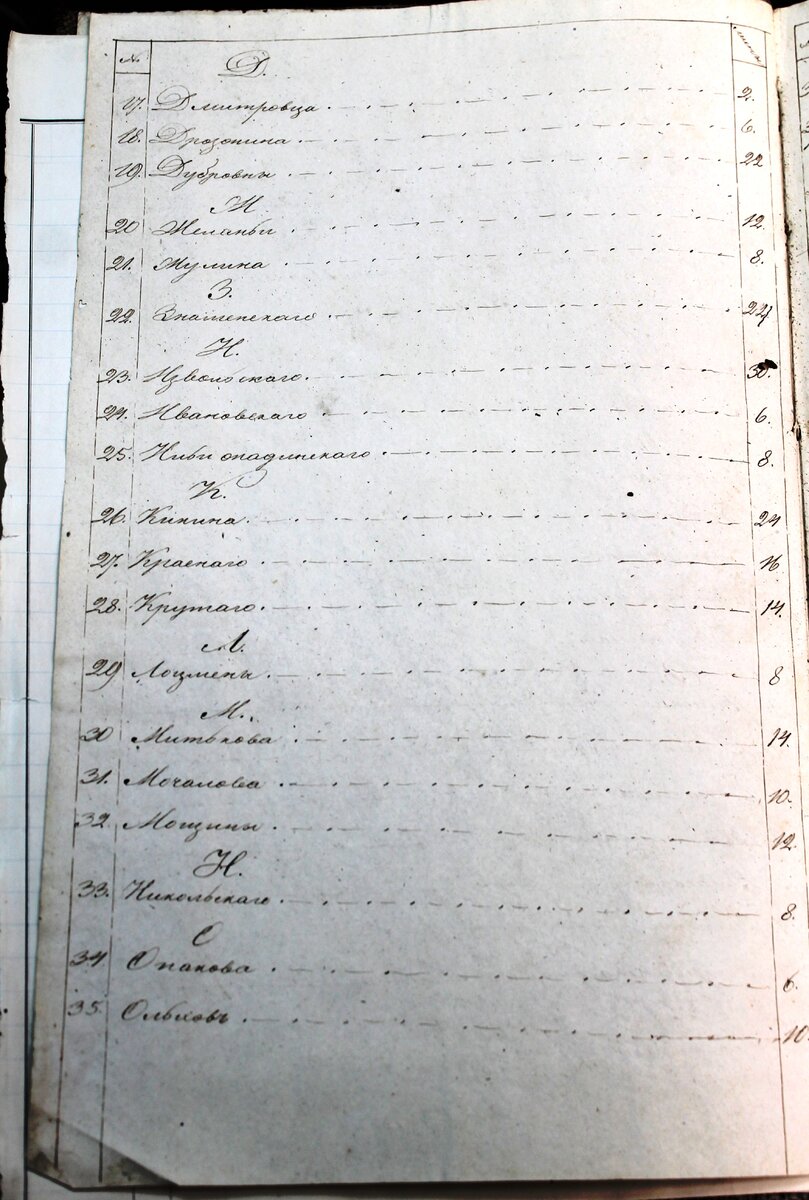 №
Д.
17. Дмитровца 2.
18. Дрозонина 6.
19. Дубровны 22
Ж
20 Желаньи 12
21. Жулина 8.
З.
22. Знаменскаго 22
И.
23. Извольскаго. 30.
24. Ивановскаго 6.
25. 8.
К.
26. Кикина. 24
27. Краснаго 16
28. Крутаго. 14.
Л.
29 Лоцмены. 8
М.
30 Митькова 14.
31. Мочалова 10.
32 Мощины 12.
Н.
33. Никольскаго 8.
О
34 Опакова 6.
35. Ольховъ 10.